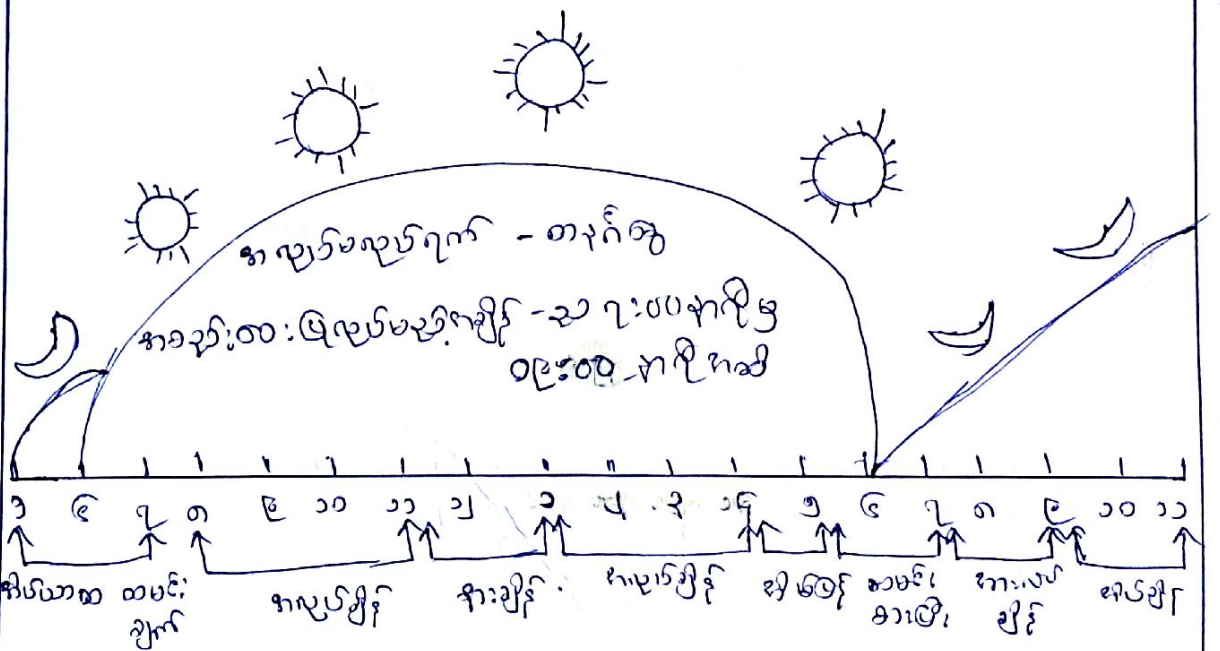 အလုပ်မလုပ်ရက် - တနင်္ဂနွေ
အစည်းဝေးပြုလုပ်မည့်အချိန် - ည ၇:၀၀ နာရီမှ
၀၉:၀၀ နာရီအထိ
၅ ၆ ၇ ၈ ၉ ၁၀ ၁၁ ၁၂ ၁ ၂ ၃ ၄ ၅ ၆ ၇ ၈ ၉ ၁၀ ၁၁
အိပ်ယာထ ထမင်း အလုပ်ချိန် နားချိန် အလုပ်ချိန် အိမ်ပြန် ထမင်း အားလပ် အိပ်ချိန်
ချက် စားပြီး ချိန်